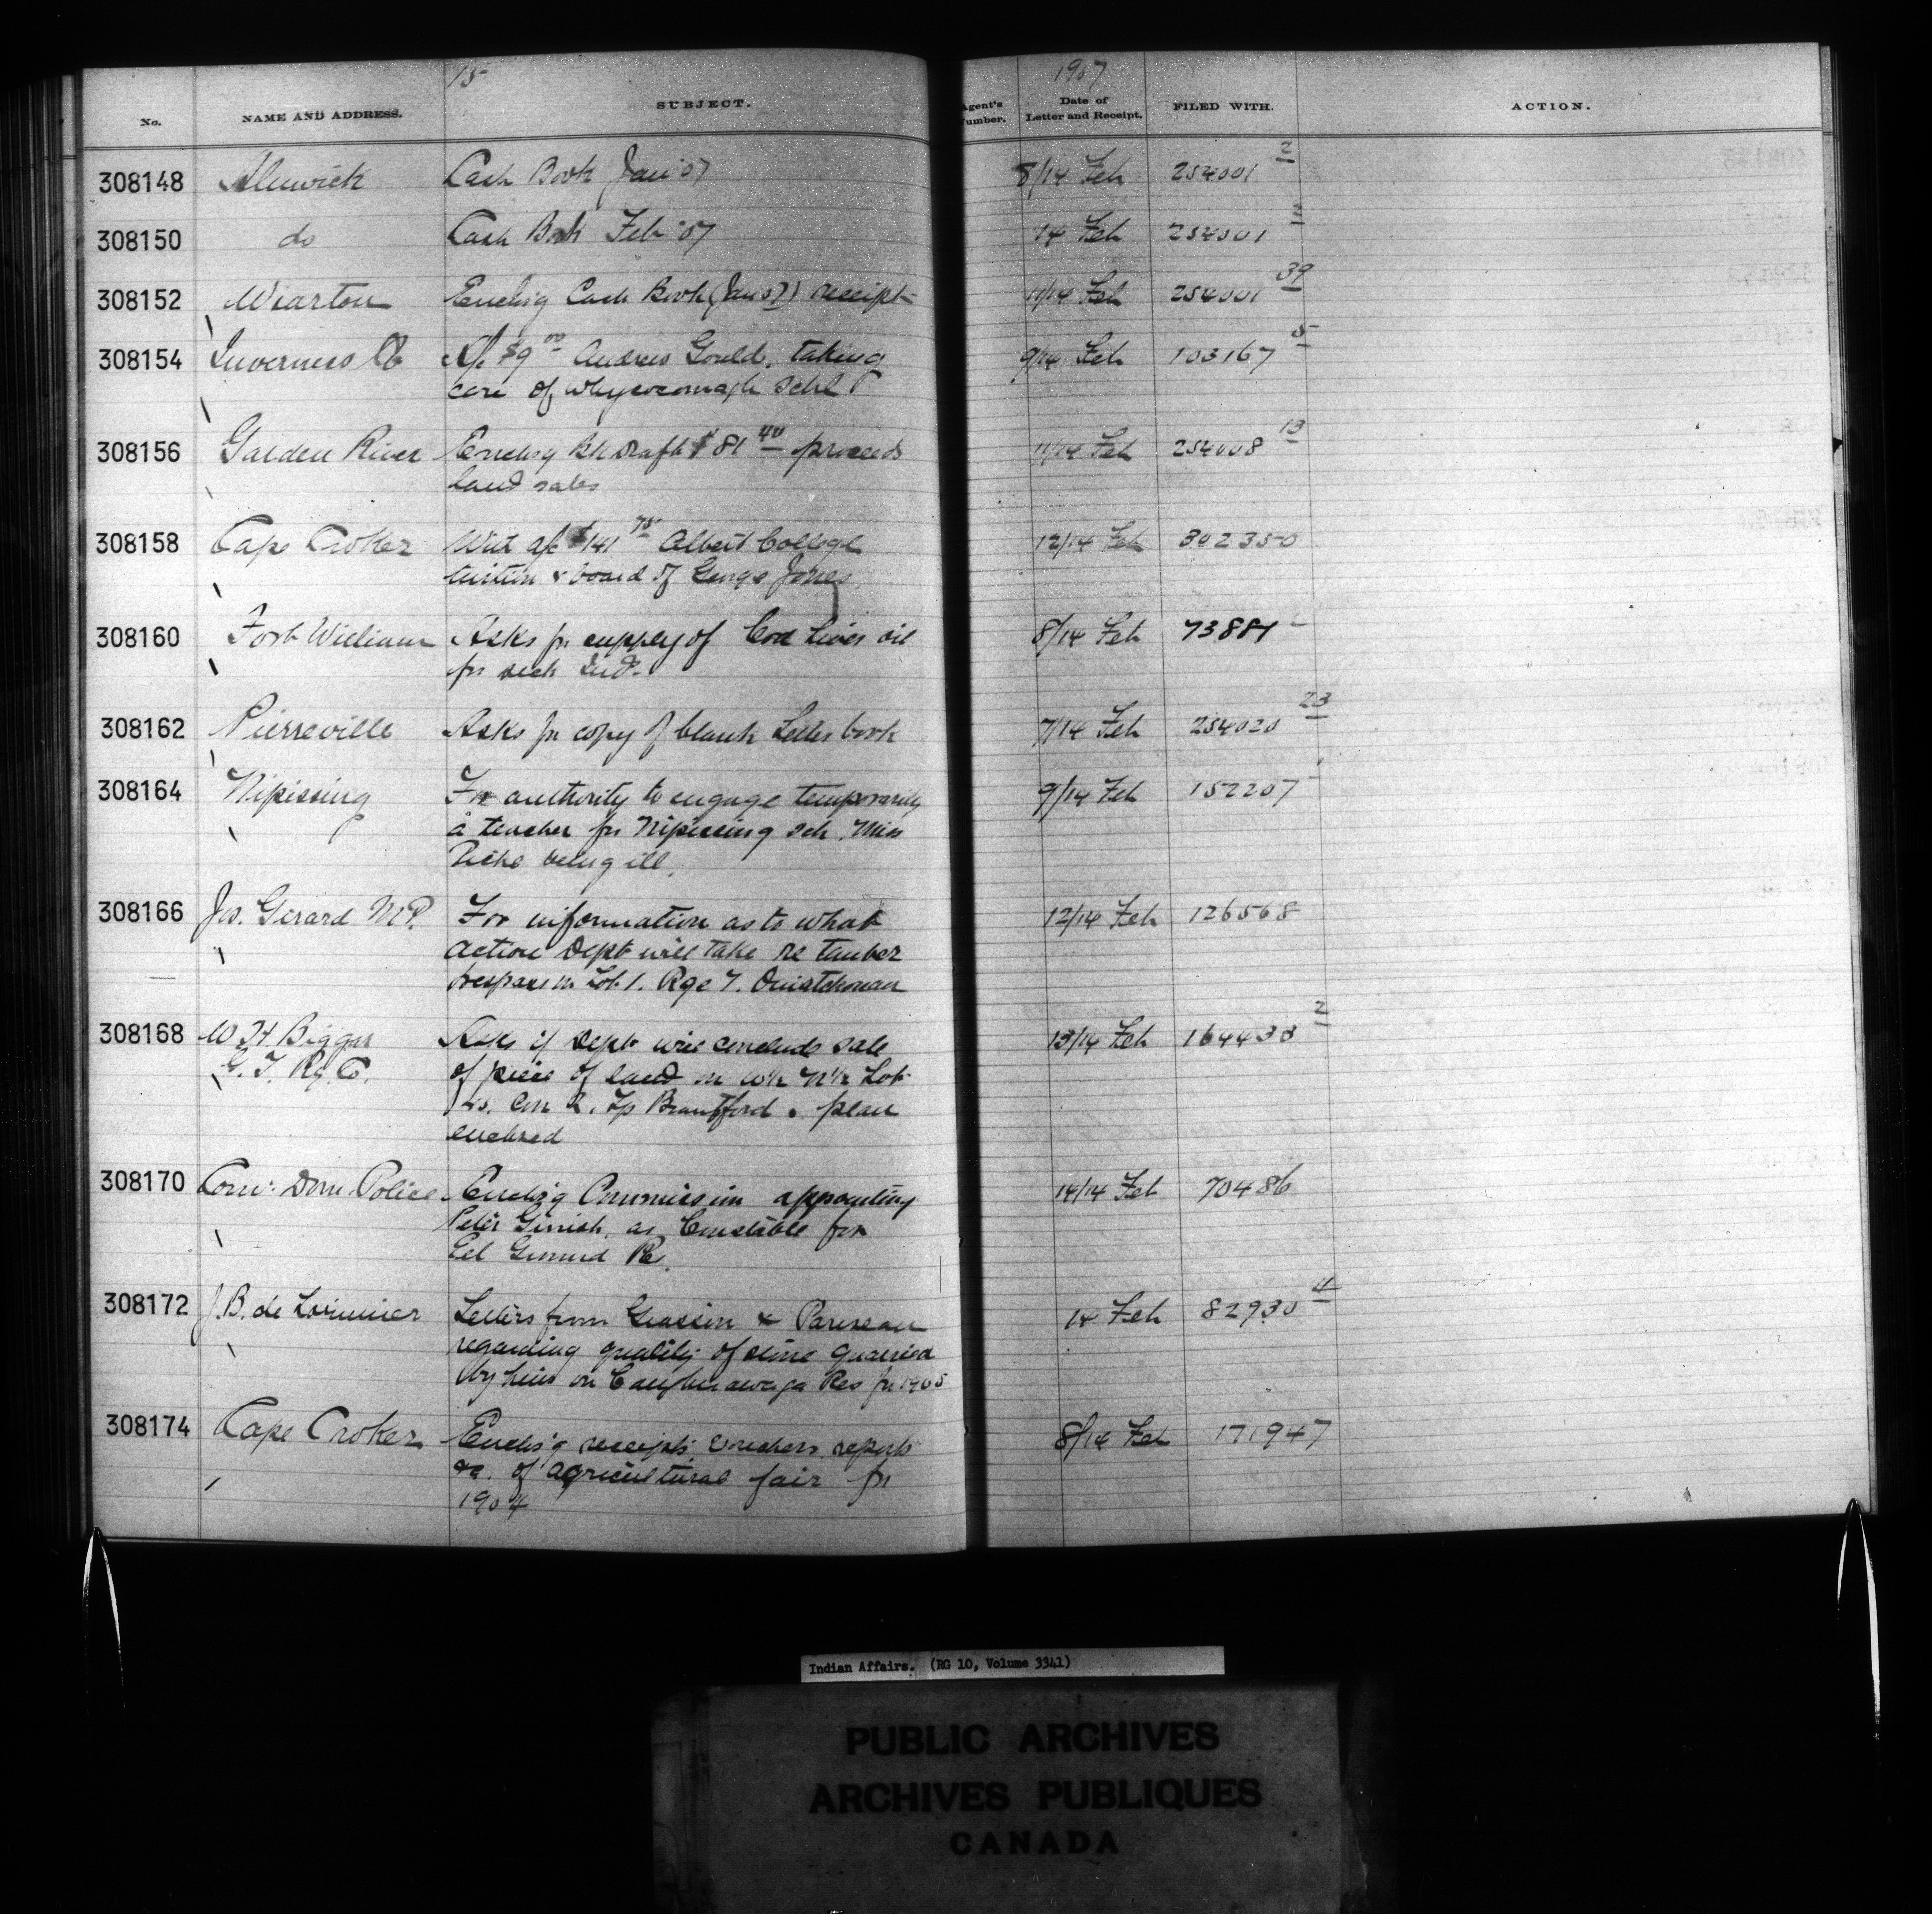 15
1907
No. NAME AND ADDRESS. SUBJECT. Agent's Number. Date of Letter and Receipt. FILED WITH. ACTION.
308148 Alnwick Cash Book Jan '07 8/14 Feb 254001 2
308150 do Cash Book Feb '07 14 Feb 254001 2
308152 Wiarton Enclsg Cash Book (Jan 07) receipt 11/14 Feb 254001 39
308154 Inverness Co A/c $9 00 Andrew Gould, taking 9/14 Feb 103167 5
care of Whycocomagh Schl
308156 Garden River Enclsg Bk Draft $81 40 proceeds 11/14 Feb 254008 13
land sales
308158 Cape Croker Wit a/c $141 75 Albert College 12/14 Feb 302350
tuition & board of George Jones
308160 Fort William Asks for supply of Cod Liver oil 8/14 Feb 73881
for sick Inds
308162 Pierreville Asks for copy of blank Letter book 7/14 Feb 254020 23
308164 Nipissing For authority to engage temporarily 9/14 Feb 152207
a teacher for Nipissing Sch. Miss
being ill.
308166 Jos. Girard M.P. For information as to what 12/14 Feb 126568
action Dept will take re timber
trespass on Lot 1. Rge 7. Ouiatchouan
308168 W H Biggar Asks if Dept will conclude sale 13/14 Feb 164433 2
G. T. Ry. Co. of piece of land in W½ N½ Lot
Con 2. Tp Brantford. plan
enclosed
308170 Comr. Dom. Police Enclsg Commission appointing 14/14 Feb 70486
Peter Ginnish, as Constable for
Eel Ground Re.
308172 J. B. de Lorimier Letters from & Pareseau 14 Feb 82930 4
regarding quality of stone quarried
by him on Caughnawaga Res for 1905
308174 Cape Croker Enclsg receipts vouchers reports 8/14 Feb 171947
&c. of agricultural fair for
1904
Indian Affairs. (RG 10, Volume 3341)
PUBLIC ARCHIVES
ARCHIVES PUBLIQUES
CANADA